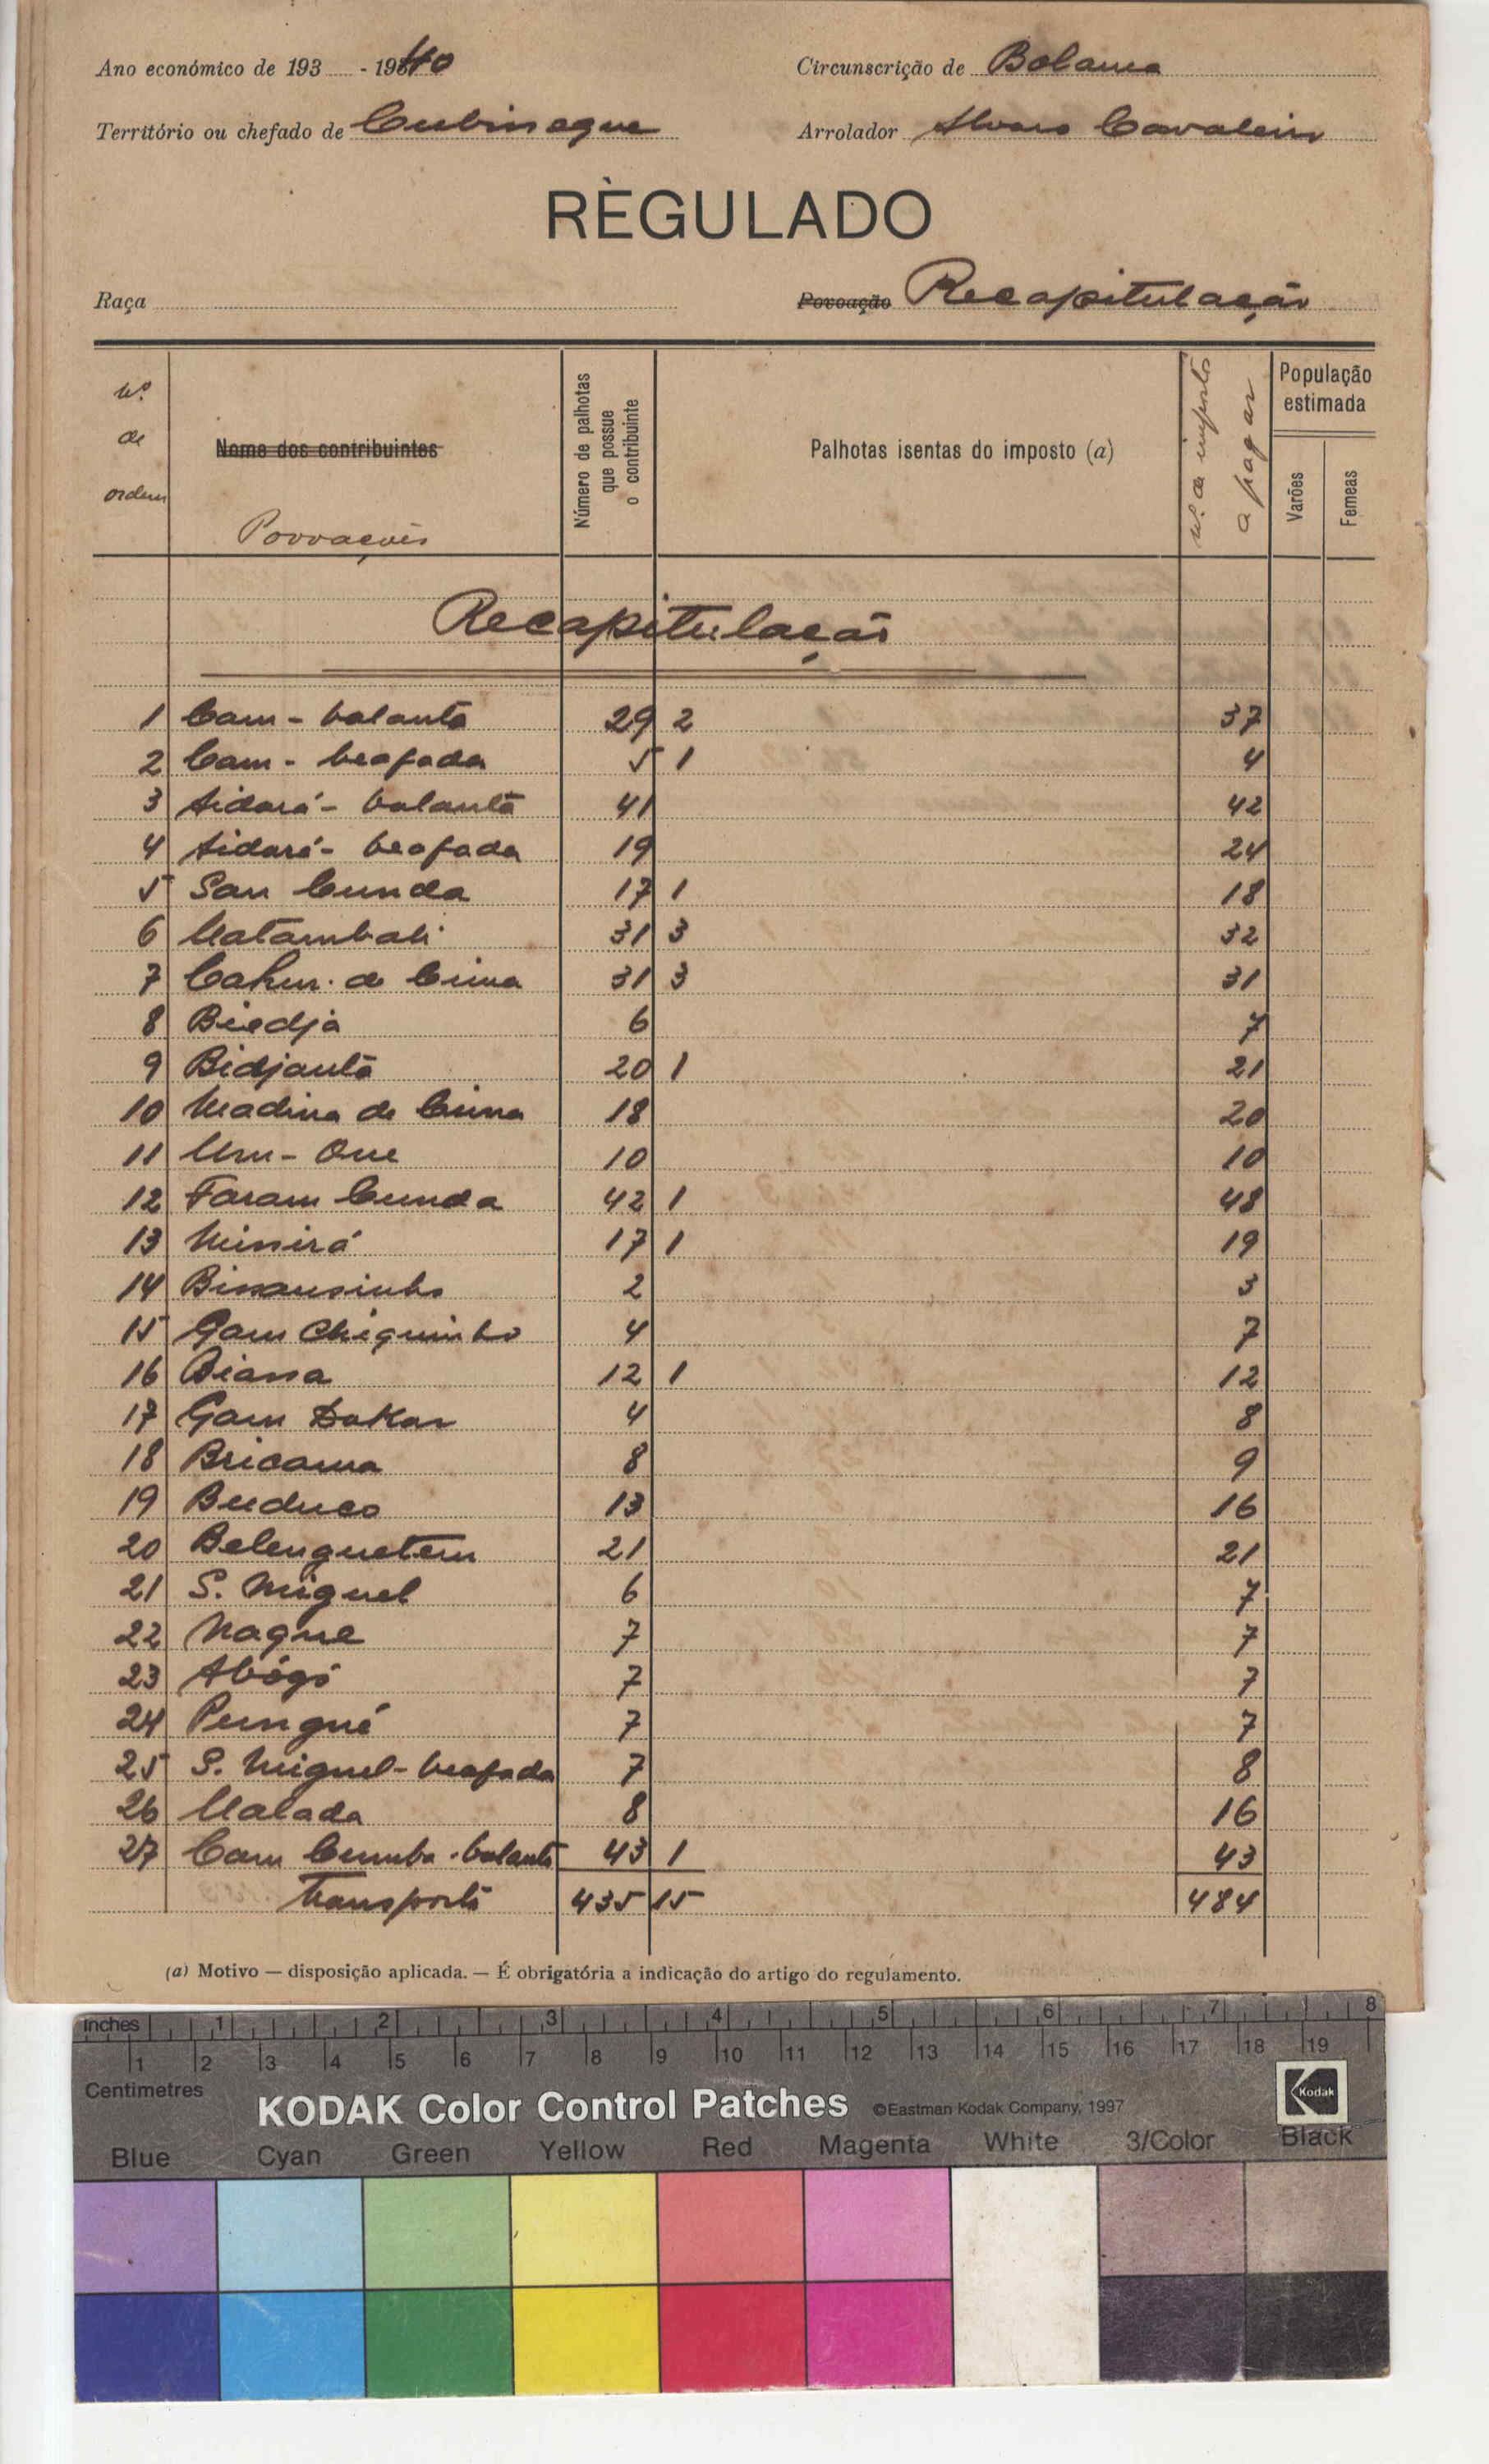 Ano económico de 193 - 1940
Circunscrição de Bolama
Território ou chefado de Cubisseque
Arrolador Alvaro Cavaleiro
RÈGULADO
Raça
Povoação Recapitulação
Nº de ordem
Nome dos contribuintes
Povoações
Número de palhotas que possue o contribuinte
Palhotas isentas do imposto (a)
Nº de impostos a pagar
População estimada
Varões
Femeas
Recapitulação
1 Cam - balanta 29 2 37
2 Cam - beafada 5 1 4
3 Aidará - balanta 41 42
4 Aidará - beafada 19 24
5 San Cunda 17 1 18
6 Uatambali 31 3 32
7 Cahur. de Cima 31 3 31
8 Biedja 6 7
9 Bidjanta 20 1 21
10 Madina de Cima 18 20
11 Um - One 10 10
12 Faram Cunda 42 1 48
13 Minirá 17 1 19
14 Bissausinho 2 3
15 Gam Chiquinho 4 7
16 Biassa 12 1 12
17 Gam Dakar 4 8
18 Bricama 8 9
19 Buduco 13 16
20 Belenguetem 21 21
21 S. Miguel 6 7
22 Naque 7 7
23 Abógó 7 7
24 Pungué 7 7
25 S. Miguel - beafada 7 8
26 Ualada 8 16
27 Cam Cumba - balanta 43 1 43
Transporte 435 15 484
(a) Motivo — disposição aplicada. — É obrigatória a indicação do artigo do regulamento.
Inches 1 2 3 4 5 6 7 8
1 2 3 4 5 6 7 8 9 10 11 12 13 14 15 16 17 18 19
Centimetres
KODAK Color Control Patches ©Eastman Kodak Company, 1997 Kodak
Blue Cyan Green Yellow Red Magenta White 3/Color Black